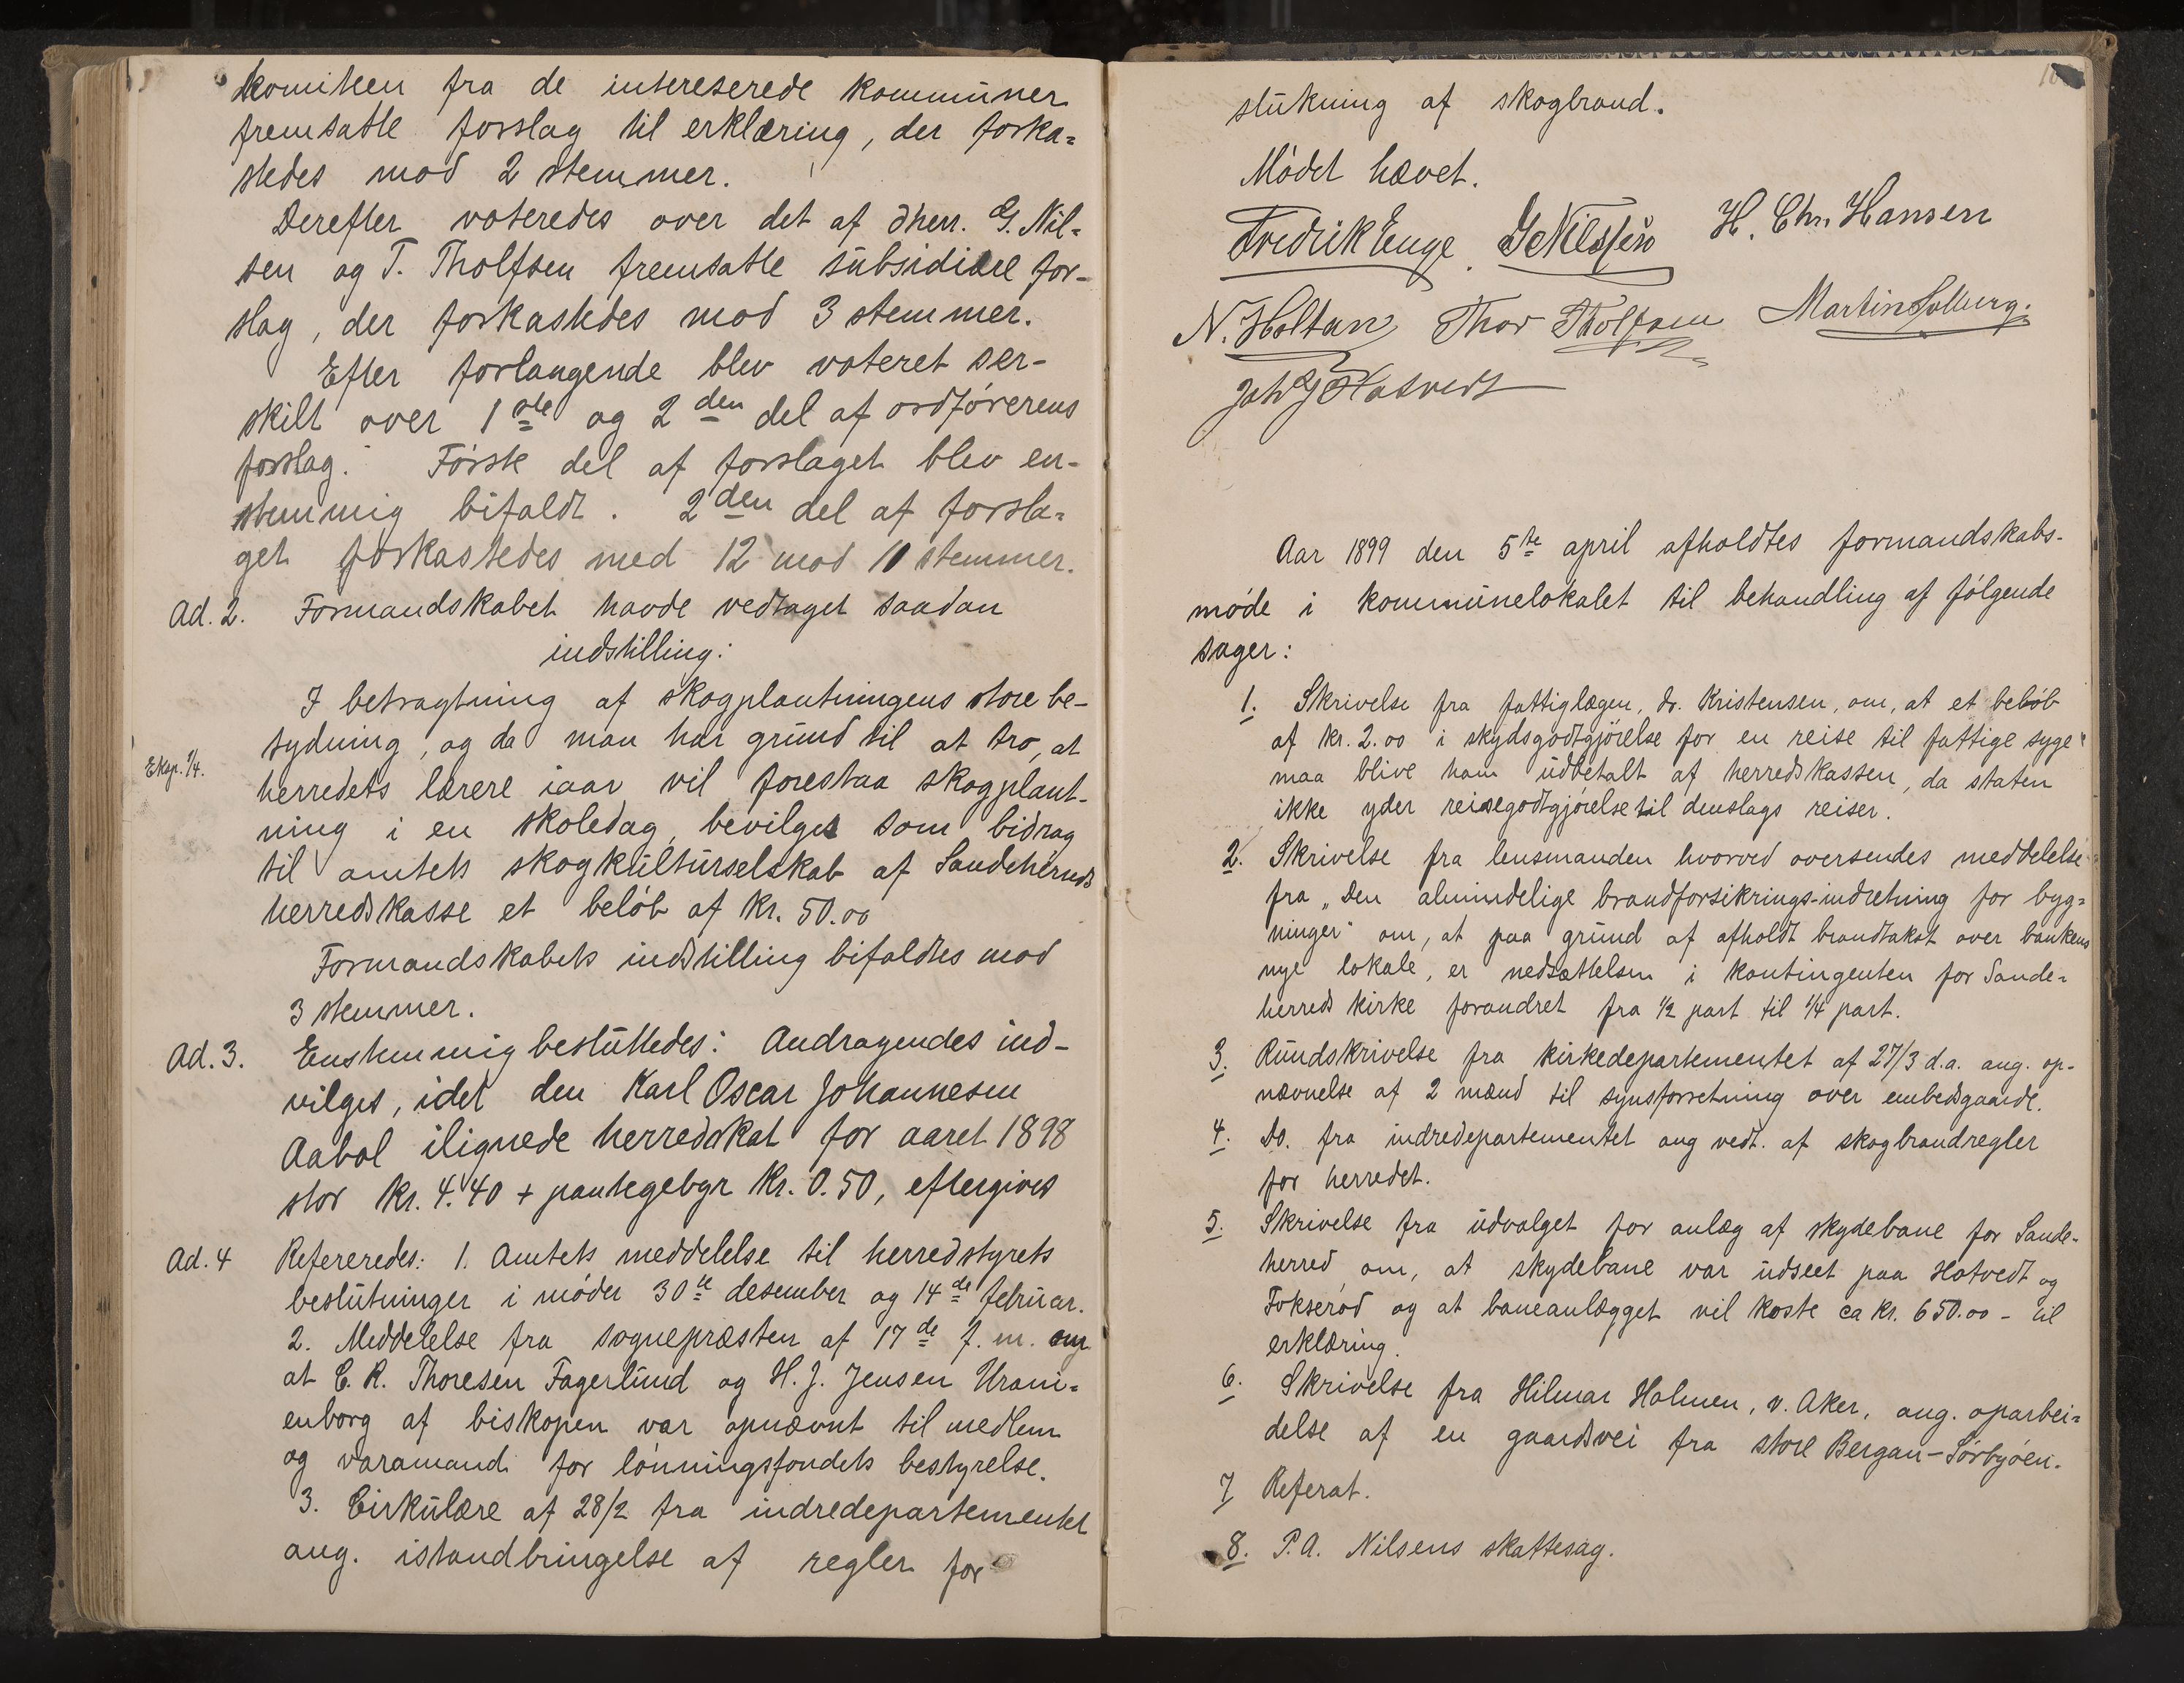 komiteen fra de intereserede kommuner
fremsatte forslag til erklæring, der forka=
stedes mod 2 stemmer.
Derefter voteredes over det af dherr. G. Nil=
sen og T. Tholfsen fremsatte subsidiære for-
slag, der forkastedes mod 3 stemmer.
Efter forlangende blev voteret sær-
skilt over 1ste og 2den del af ordførerens
forslag. Første del af forslaget blev en-
stemmig bifaldt. 2den del af forsla=
get forkastedes med 12 mod 10 stemmer.
Ad. 2. Formandskabet havde vedtaget saadan
indstilling:
I betragtning af skogplantningens store be-
tydning, og da man har grund til at tro, at
Eksp. 7/4.
herredets lærere iaar vil forestaa skogplant-
ning i en skoledag, bevilges som bidrag
til amtets skogkulturselskab af Sandeherreds
herredskasse et beløb af kr. 50.00
Formandskabets indstilling bifaldtes mod
3 stemmer.
Ad. 3. Enstemmig besluttedes: Andragendes ind-
vilges, idet den Karl Oscar Johannesen
Aabol ilignede herredskat for aaret 1898
stor kr. 4.40 + pantegebyr kr. 0.50, eftergives
Ad. 4 Refereredes: 1. Amtets meddelelse til herredstyrets
beslutninger i møder 30te desember og 14de februar.
2. Meddelelse fra sognepræsten af 17de f. m. om
at E. R. Thoresen Fagerlund og H. J. Jensen Urani=
enborg af biskopen var opnævnt til medlem
og varamand for lønningsfondets bestyrelse.
3. Cirkulære af 28/2 fra indredepartementet
ang. istandbringelse af regler for
slukning af skogbrand.
Mødet hævet.
Fredrik Enge G Nilssen H. Chr. Hansen
N. Holtan Thor Tholfsen Martin Solberg.
Joh G Hotvedt
Aar 1899 den 5te april afholdtes formandskabs-
møde i kommunelokalet til behandling af følgende
sager:
1. Skrivelse fra fattiglægen, dr. Kristensen, om, at et beløb
af kr. 2.00 i skydsgodtgjørelse for en reise til fattige syge
maa blive ham udbetalt af herredskassen, da staten
ikke yder reisegodtgjørelse til denslags reiser.
2. Skrivelse fra lensmanden hvorved oversendes meddelelse
fra „Den almindelige brandforsikrings-indretning for byg=
ninger" om, at paa grund af afholdt brandtakst over bankens
nye lokale, er nedsættelsen i kontingenten for Sande=
herreds kirke forandret fra 1/2 part til 1/4 part.
3. Rundskrivelse fra kirkedepartementet af 27/3 d.a. ang. op-
nævnelse af 2 mænd til synsforretning over embedsgaarde.
4. Do. fra indredepartementet ang vedt. af skogbrandregler
for herredet.
5. Skrivelse fra udvalget for anlæg af skydebane for Sande-
herred, om, at skydebane var udseet paa Hotvedt og
Fokserød og at baneanlægget vil koste ca kr. 650.00 - til
erklæring.
6. Skrivelse fra Hilmar Holmen, v. Aker, ang. oparbei=
delse af en gaardsvei fra store Bergan-Sørbyøen.
7 Referat.
8. P. A. Nilsens skattesag.